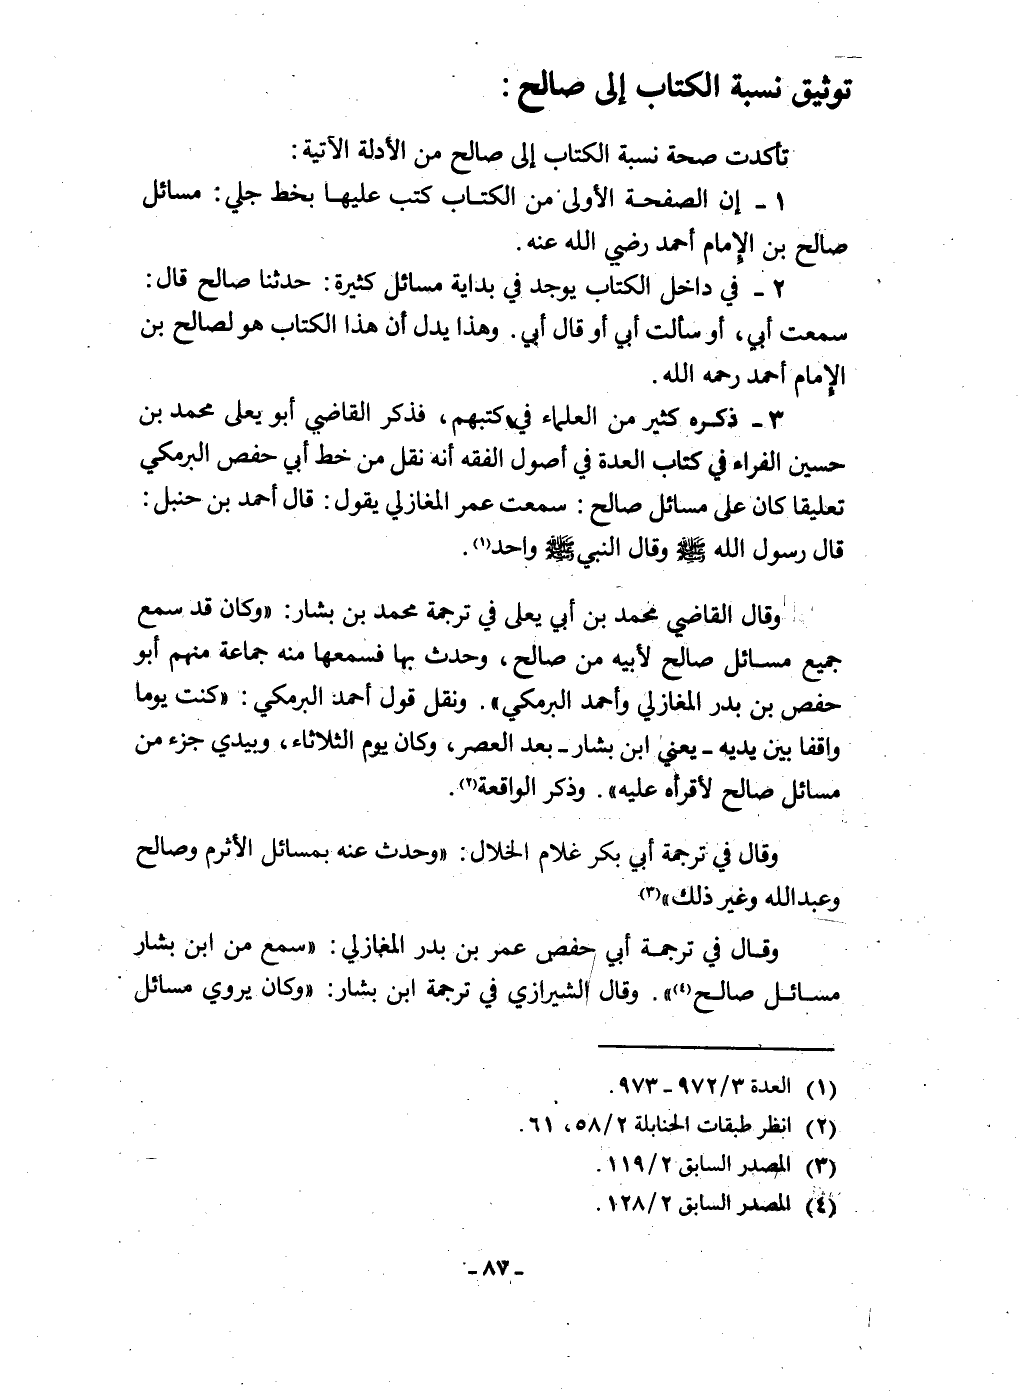 توثيق نسبة الكتاب إلى صالح :
تأكدت صحة نسبة الكتاب إلى صالح من الأدلة الآتية :
١ ـ إن الصفحة الأولى من الكتاب كتب عليها بخط جلي : مسائل
صالح بن الإمام أحمد رضي الله عنه .
٢ ـ في داخل الكتاب يوجد في بداية مسائل كثيرة : حدثنا صالح قال :
سمعت أبي ، أو سألت أبي أو قال أبي . وهذا يدل أن هذا الكتاب هو لصالح بن
الإمام أحمد رحمه الله .
٣ ـ ذكره كثير من العلماء في كتبهم ، فذكر القاضي أبو يعلى محمد بن
حسين الفراء في كتاب العدة في أصول الفقه أنه نقل من خط أبي حفص البرمكي
تعليقا كان على مسائل صالح : سمعت عمر المغازلي يقول : قال أحمد بن حنبل :
قال رسول الله ﷺ وقال النبي ﷺ واحد(١) .
وقال القاضي محمد بن أبي يعلى في ترجمة محمد بن بشار : «وكان قد سمع
جميع مسائل صالح لأبيه من صالح ، وحدث بها فسمعها منه جماعة منهم أبو
حفص بن بدر المغازلي وأحمد البرمكي» . ونقل قول أحمد البرمكي : «كنت يوما
واقفا بين يديه ـ يعني ابن بشار ـ بعد العصر ، وكان يوم الثلاثاء ، وبيدي جزء من
مسائل صالح لأقرأه عليه» . وذكر الواقعة(٢) .
وقال في ترجمة أبي بكر غلام الخلال : «وحدث عنه بمسائل الأثرم وصالح
وعبدالله وغير ذلك»(٣)
وقال في ترجمة أبي حفص عمر بن بدر المغازلي : «سمع من ابن بشار
مسائل صالح(٤)» . وقال الشيرازي في ترجمة ابن بشار : «وكان يروي مسائل
(١) العدة ٩٧٢/٣ ـ ٩٧٣ .
(٢) انظر طبقات الحنابلة ٥٨/٢ ، ٦١ .
(٣) المصدر السابق ١١٩/٢ .
(٤) المصدر السابق ١٢٨/٢ .
ـ ٨٧ ـ